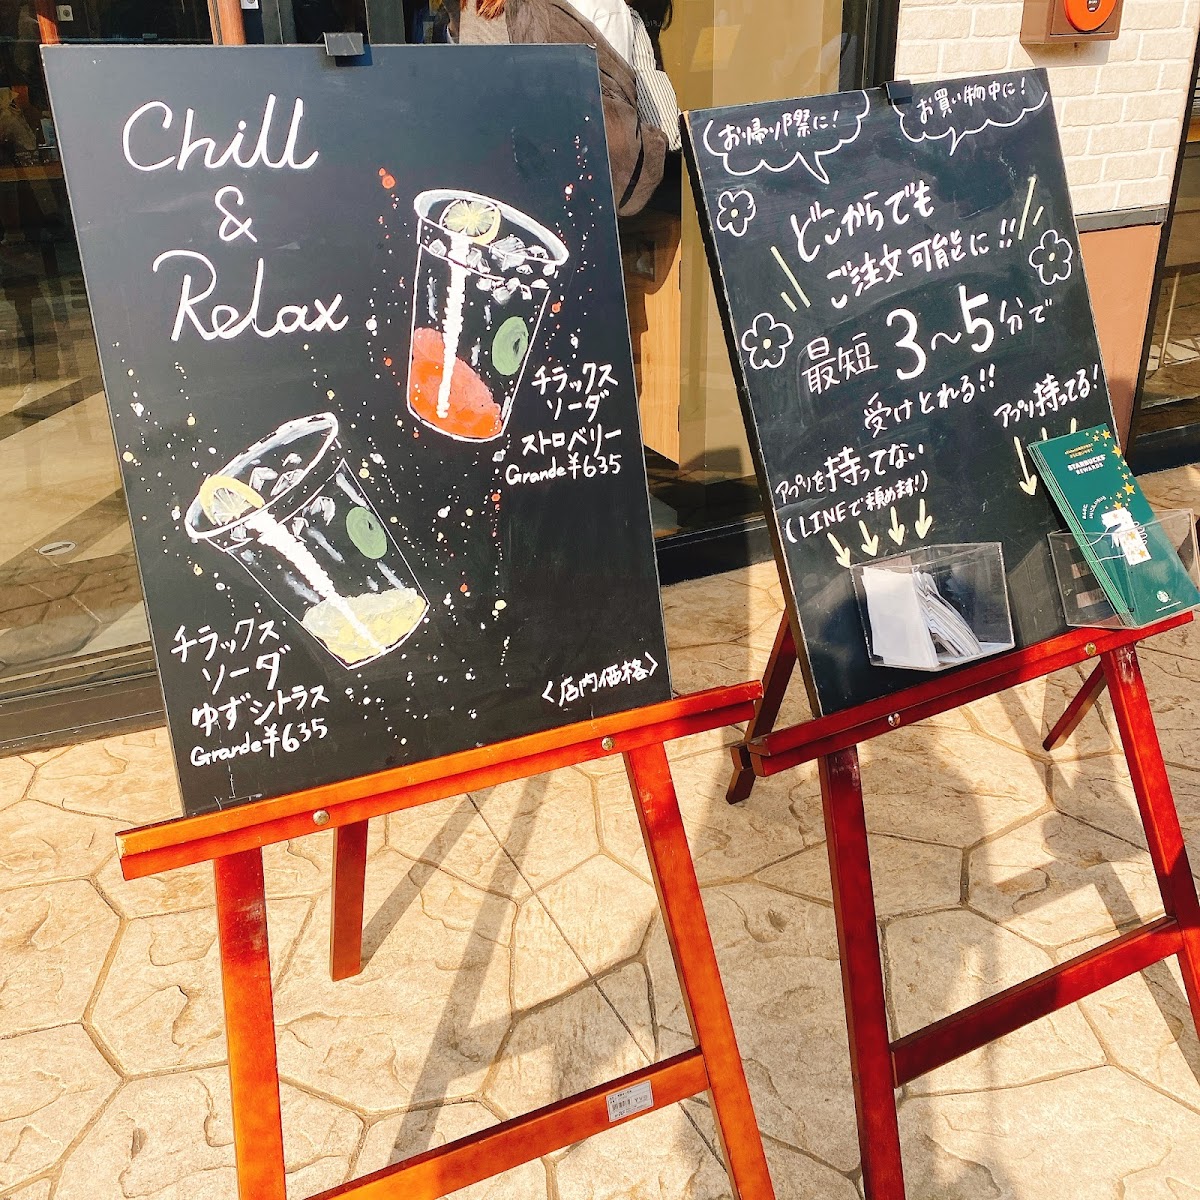 Chill
&
Relax
チラックス
ソーダ
ストロベリー
Grande ¥635
チラックス
ソーダ
ゆずシトラス
Grande ¥635
〈店内価格〉
お帰り際に!
お買い物中に!
どこからでも
ご注文可能に!!
最短 3〜5分で
受けとれる!!
アプリ持ってる!
アプリを持ってない
(LINEで頼めます!)
STARBUCKS®
REWARDS